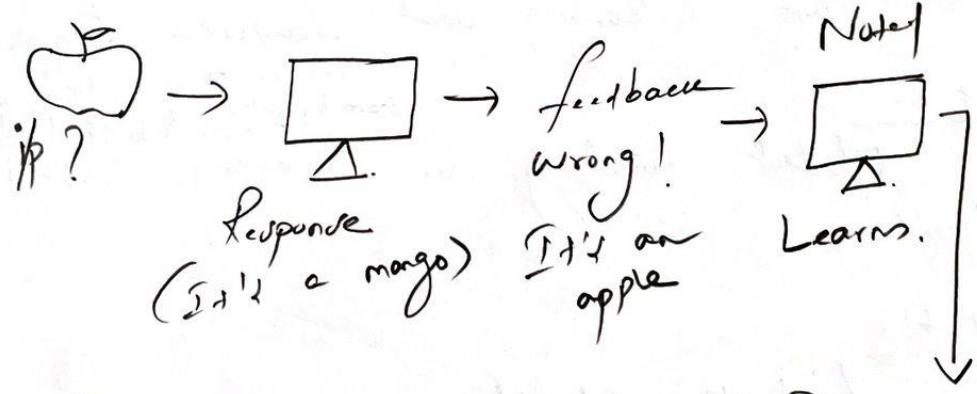 ip?
Response
(It's a mango)
feedback
wrong!
It's an
apple
Noted
Learns.